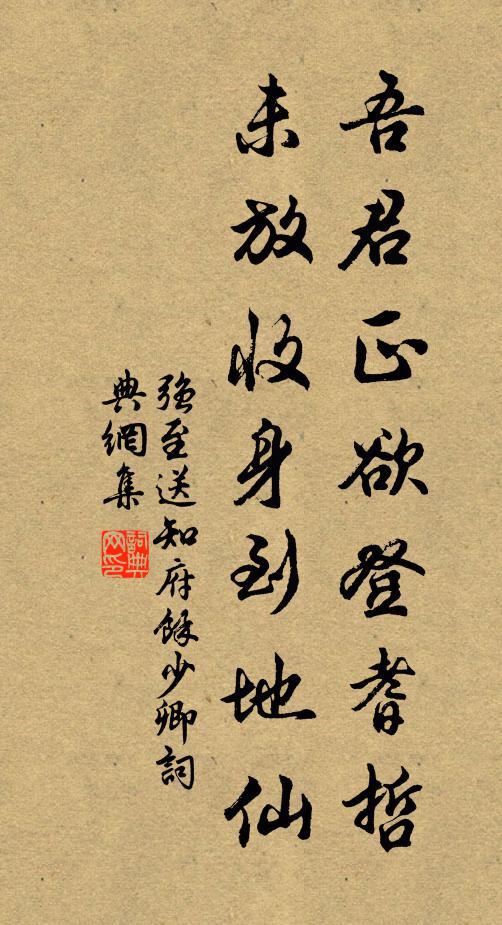 吾君正欲登耆哲
未放收身到地仙
强至送知府餘少卿詞
典網集
詞典網印